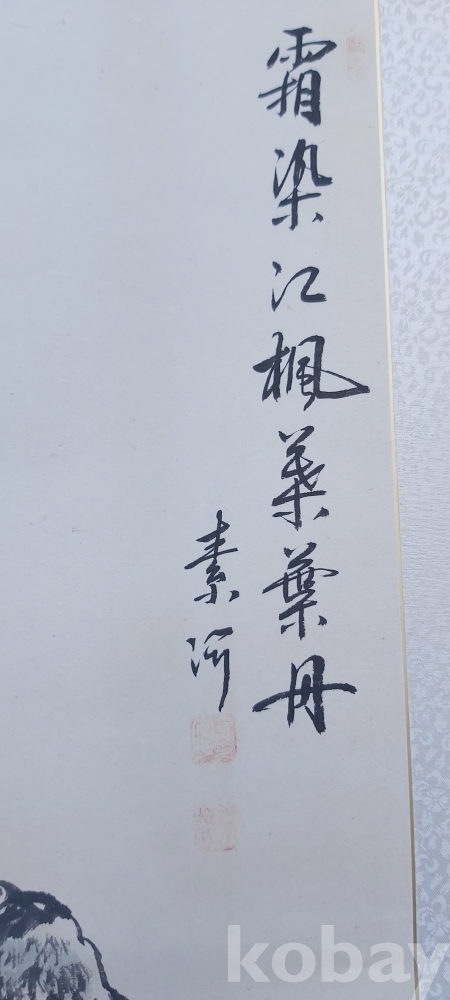 霜染江楓葉葉丹
素
kobay